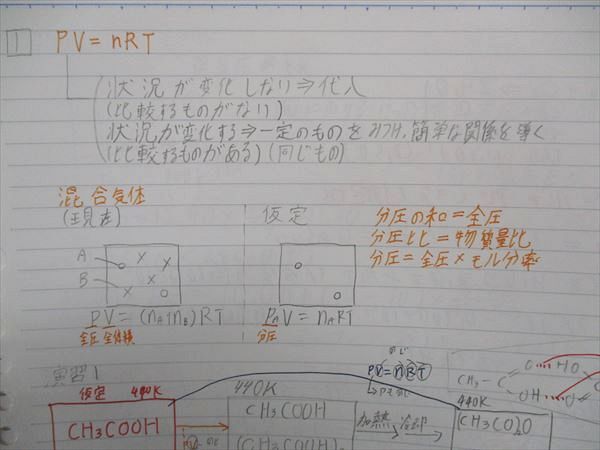 1 PV=nRT
状況が変化しない⇒代入
(比較するものがない)
状況が変化する⇒一定のものをみつけ、簡単な関係を導く
(比較するものがある)(同じもの)
混合気体
(現在)
仮定
分圧の和=全圧
分圧比=物質量比
分圧=全圧×モル分率
A
B
PV=(nA+nB)RT
全圧 全体積
PAV=nART
分圧
演習1
仮定 440K
CH3COOH
440K
CH3COOH
(CH3COOH)
PV=nRT
加熱 冷却
440K
(CH3CO)2O
CH3-C
O HO
OH O